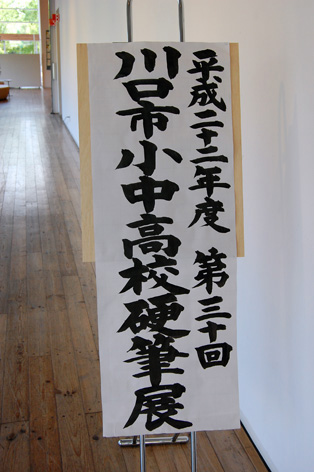 平成二十二年度 第三十回
川口市小中高校硬筆展